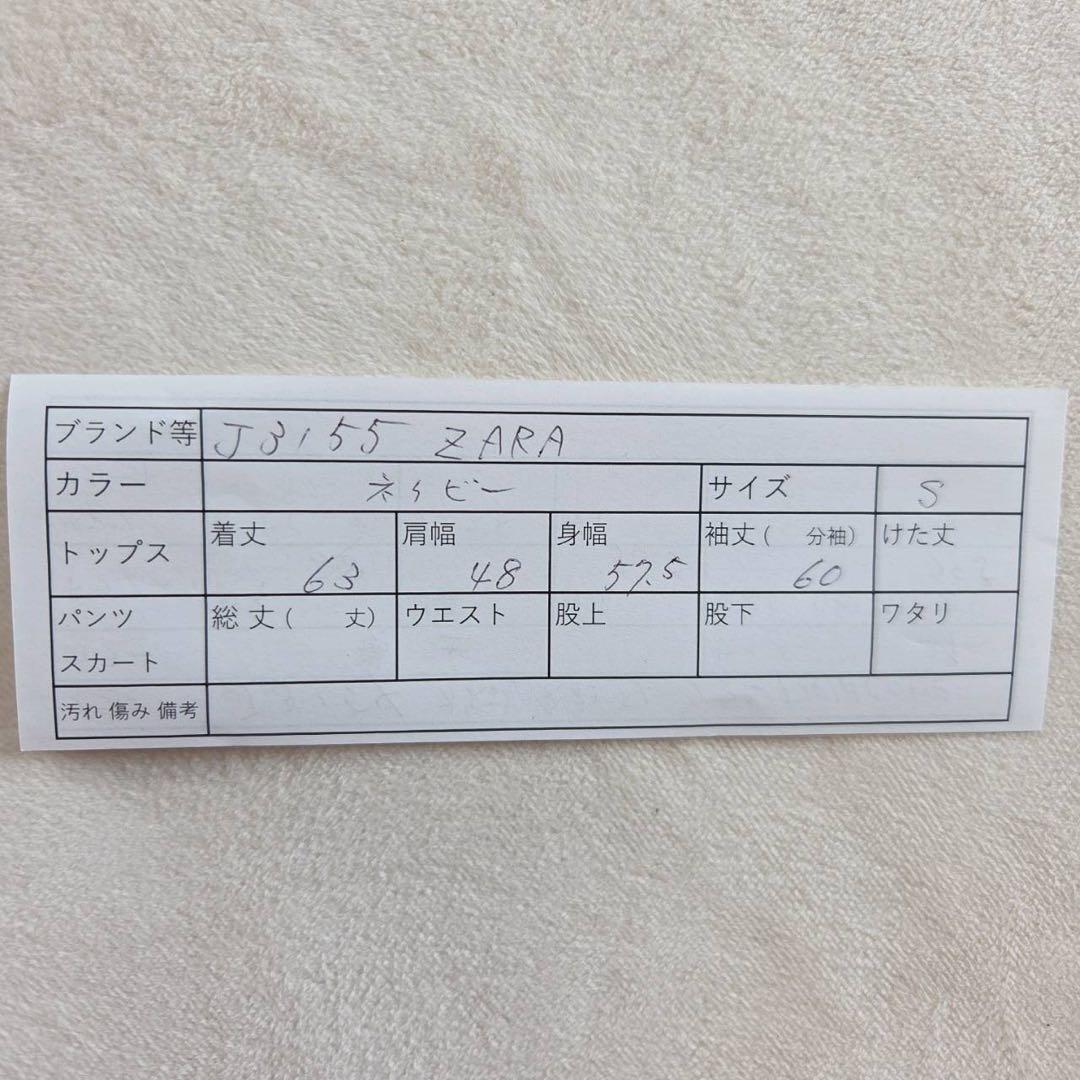 ブランド等 J3155 ZARA
カラー ネイビー サイズ S
トップス 着丈 63 肩幅 48 身幅 57.5 袖丈( 分袖) 60 けた丈
パンツ スカート 総丈( 丈) ウエスト 股上 股下 ワタリ
汚れ 傷み 備考